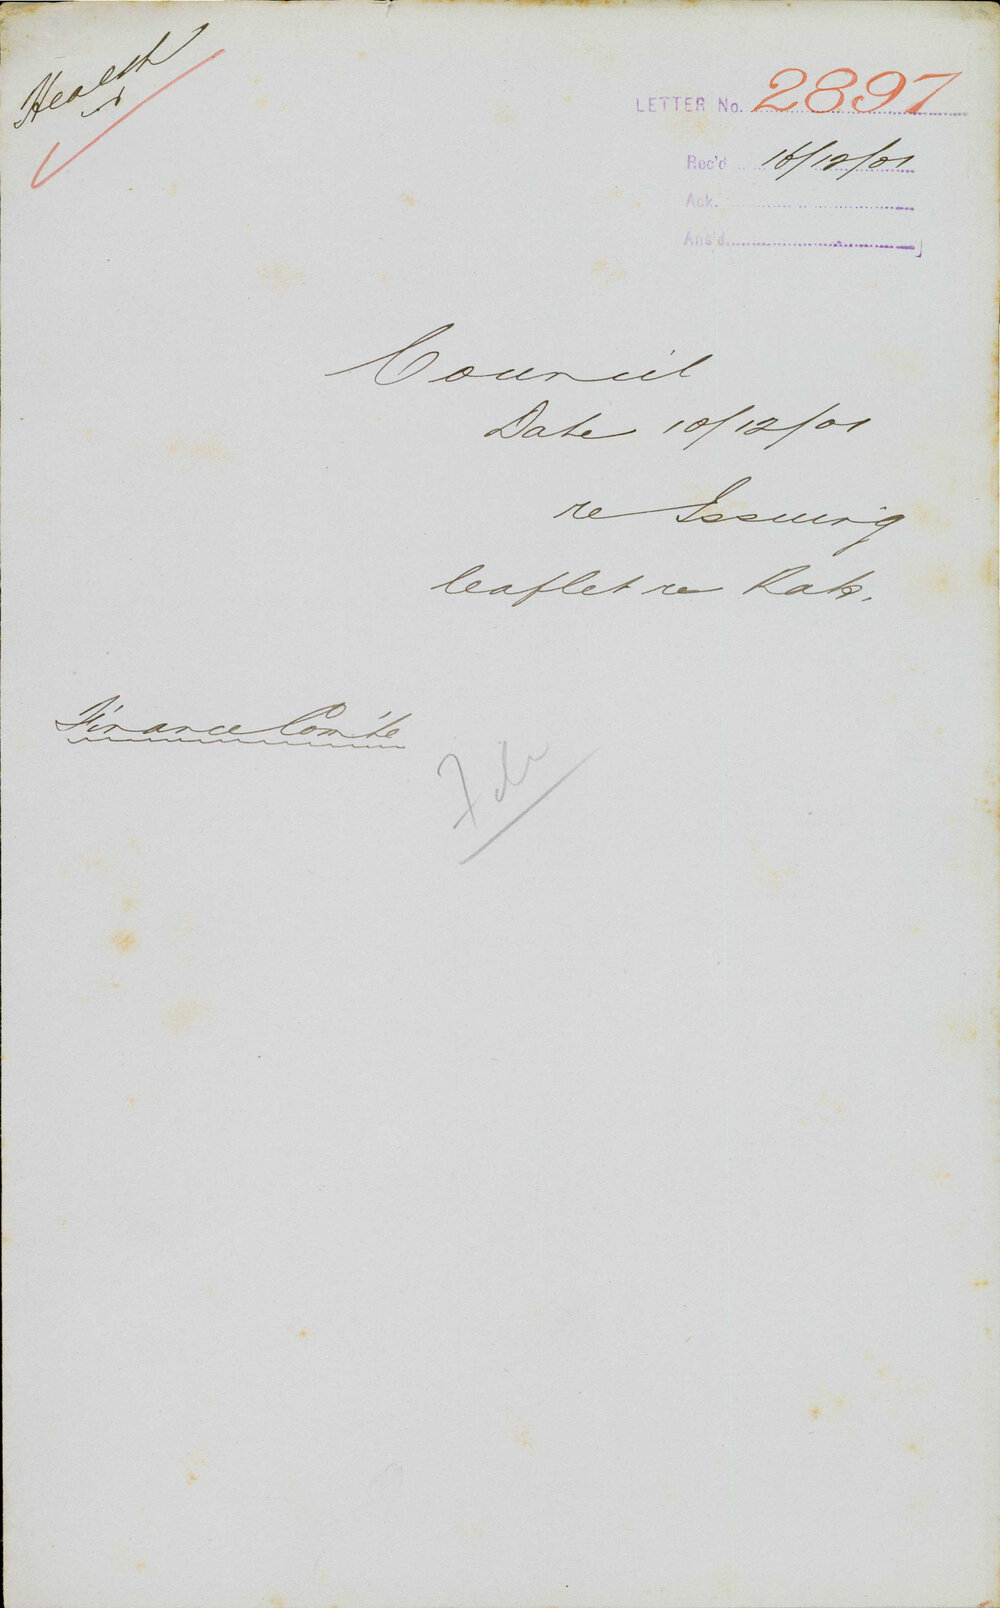 Health
LETTER No. 2897
Rec'd 16/12/01
Ack.
Ans'd
Council
Date 10/12/01
re Issuing
leaflet re Rats.
Finance Com'te